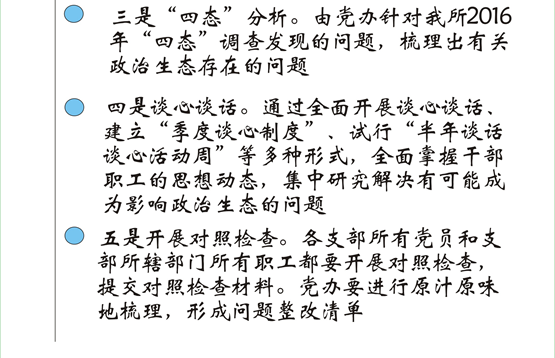 三是“四态”分析。由党办针对我所2016
年“四态”调查发现的问题，梳理出有关
政治生态存在的问题
四是谈心谈话。通过全面开展谈心谈话、
建立“季度谈心制度”、试行“半年谈话
谈心活动周”等多种形式，全面掌握干部
职工的思想动态，集中研究解决有可能成
为影响政治生态的问题
五是开展对照检查。各支部所有党员和支
部所辖部门所有职工都要开展对照检查，
提交对照检查材料。党办要进行原汁原味
地梳理，形成问题整改清单